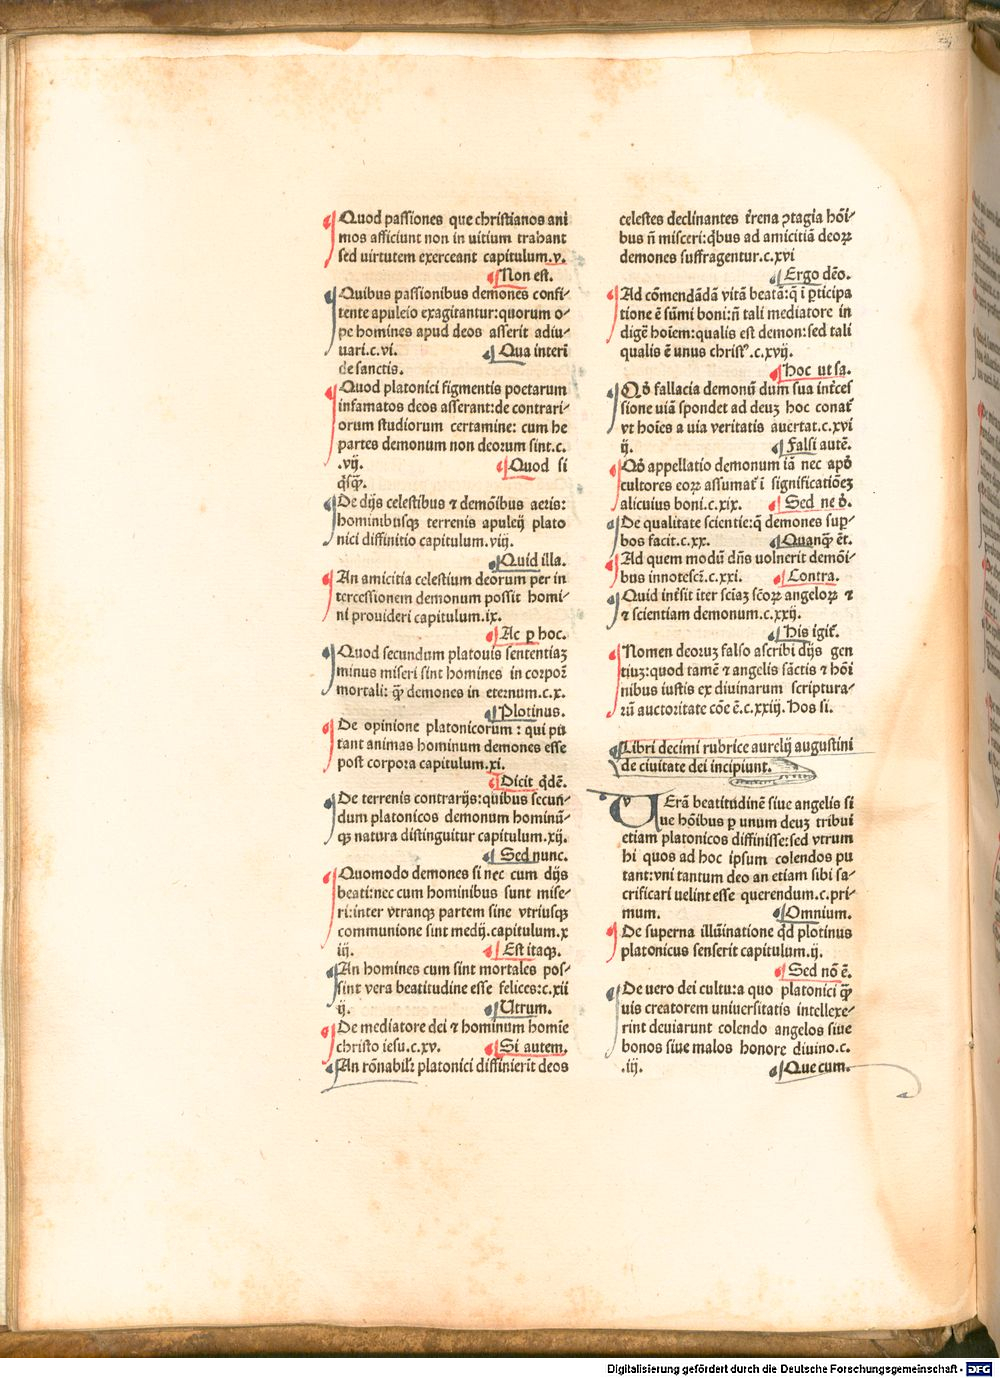 Quod passiones que christianos ani
mos afficiunt non in uitium trahant
sed uirtutem exerceant capitulum.v.
Non est.
Quibus passionibus demones confi-
tente apuleio exagitantur:quorum o-
pe homines apud deos asserit adiu-
uari.c.vi. Qua interi
de sanctis.
Quod platonici figmentis poetarum
infamatos deos asserant:de contrari-
orum studiorum certamine: cum he
partes demonum non deorum sint.c.
.vij. Quod si
qsq̃.
De dijs celestibus ⁊ demõibus aeris:
hominibusqꝫ terrenis apuleij plato
nici diffinitio capitulum.viij.
Quid illa.
An amicitia celestium deorum per in
tercessionem demonum possit homi-
ni prouideri capitulum.ix.
Ac ꝑ hoc.
Quod secundum platouis sententiaꝫ
minus miseri sint homines in corpoꝛ̃
mortali: q̃ꝫ demones in eternum.c.x.
Plotinus.
De opinione platonicorum : qui pu
tant animas hominum demones esse
post corpora capitulum.xi.
Dicit qdẽ.
De terrenis contrarijs:quibus secun-
dum platonicos demonum hominũ-
qꝫ natura distinguitur capitulum.xij.
Sed nunc.
Quomodo demones si nec cum dijs
beati:nec cum hominibus sunt mise-
ri:inter vtranqꝫ partem sine vtriusqꝫ
communione sint medij.capitulum.x
iij. Est itaqꝫ.
An homines cum sint mortales pos-
sint vera beatitudine esse felices:c.xii
ij. Utrum.
De mediatore dei ⁊ hominum homĩe
christo iesu.c.xv. Si autem.
An rõnabilꝛ platonici diffinierĩt deos
celestes declinantes t̃rena ꝯtagia hõi-
bus ñ misceri:q̃bus ad amicitiã deoꝝ
demones suffragentur.c.xvi
Ergo dẽo.
Ad cõmendãdã vitã beatã:q̃ ĩ ꝑticipa
tione ẽ sũmi boni:ñ tali mediatore in
digẽ hoĩem:qualis est demon:sed tali
qualis ẽ unus christꝰ.c.xvij.
hoc ut sa.
Qõ fallacia demonũ dum sua int̃ces
sione uiã spondet ad deuꝫ hoc conat̃
vt hoĩes a uia veritatis auertat.c.xvi
ij. Falsi autẽ.
Qõ appellatio demonum iã nec apð
cultores eoꝝ assumat̃ ĩ significatiõeꝫ
alicuius boni.c.xix. Sed ne ð.
De qualitate scientie:q̃ demones suꝑ-
bos facit.c.xx. Quanq̃ ẽt.
Ad quem modũ dñs uolnerit demõi-
bus innotescẽ.c.xxi. Contra.
Quid int̃sit iter sciaꝫ sc̃oꝝ angeloꝝ ⁊
⁊ scientiam demonum.c.xxij.
His igit̃.
Nomen deoruꝫ falso ascribi dijs gen
tiuꝫ:quod tamẽ ⁊ angelis sãctis ⁊ hõi
nibus iustis ex diuinarum scriptura-
rũ auctoritate cõe ẽ.c.xxiij. Hos si.
Libri decimi rubrice aurelij augustini
de ciuitate dei incipiunt.
VErã beatitudinẽ siue angelis si
ue hõibus ꝑ unum deuꝫ tribui
etiam platonicos diffinisse:sed vtrum
hi quos ad hoc ipsum colendos pu
tant:vni tantum deo an etiam sibi sa-
crificari uelint esse querendum.c.pri-
mum. Omnium.
De superna illũinatione qd plotinus
platonicus senserit capitulum.ij.
Sed nõ ẽ.
De uero dei cultu:a quo platonici q̃ꝫ
uis creatorem uniuersitatis intellexe-
rint deuiarunt colendo angelos siue
bonos siue malos honore diuino.c.
.iij. Que cum.
Digitalisierung gefördert durch die Deutsche Forschungsgemeinschaft - DFG